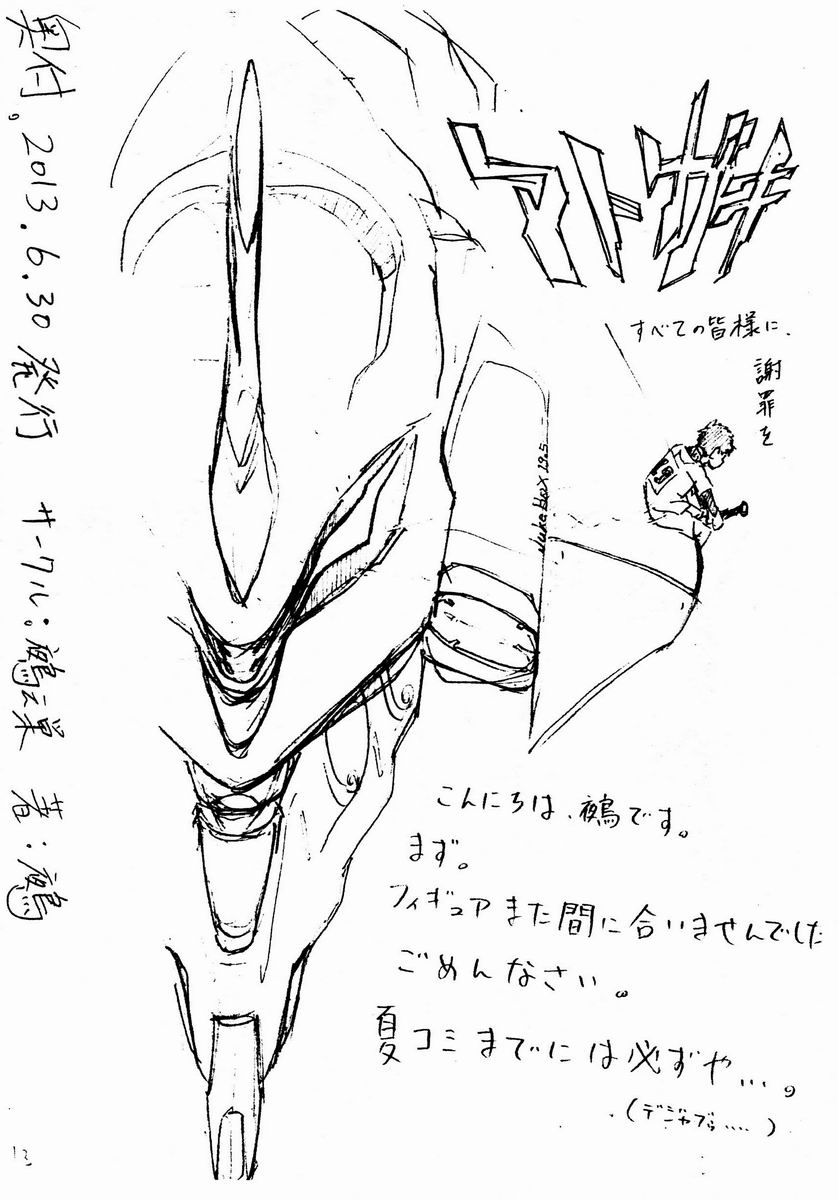 アトガキ
すべての皆様に、
謝罪を
19
Juke Box 19.5
こんにちは、鵺です。
まず。
フィギュアまた間に合いませんでした
ごめんなさい。
夏コミまでには必ずや…。
(デジャブゥ....)
奥付。2013.6.30 発行 サークル:鵺之巣 著:鵺
13